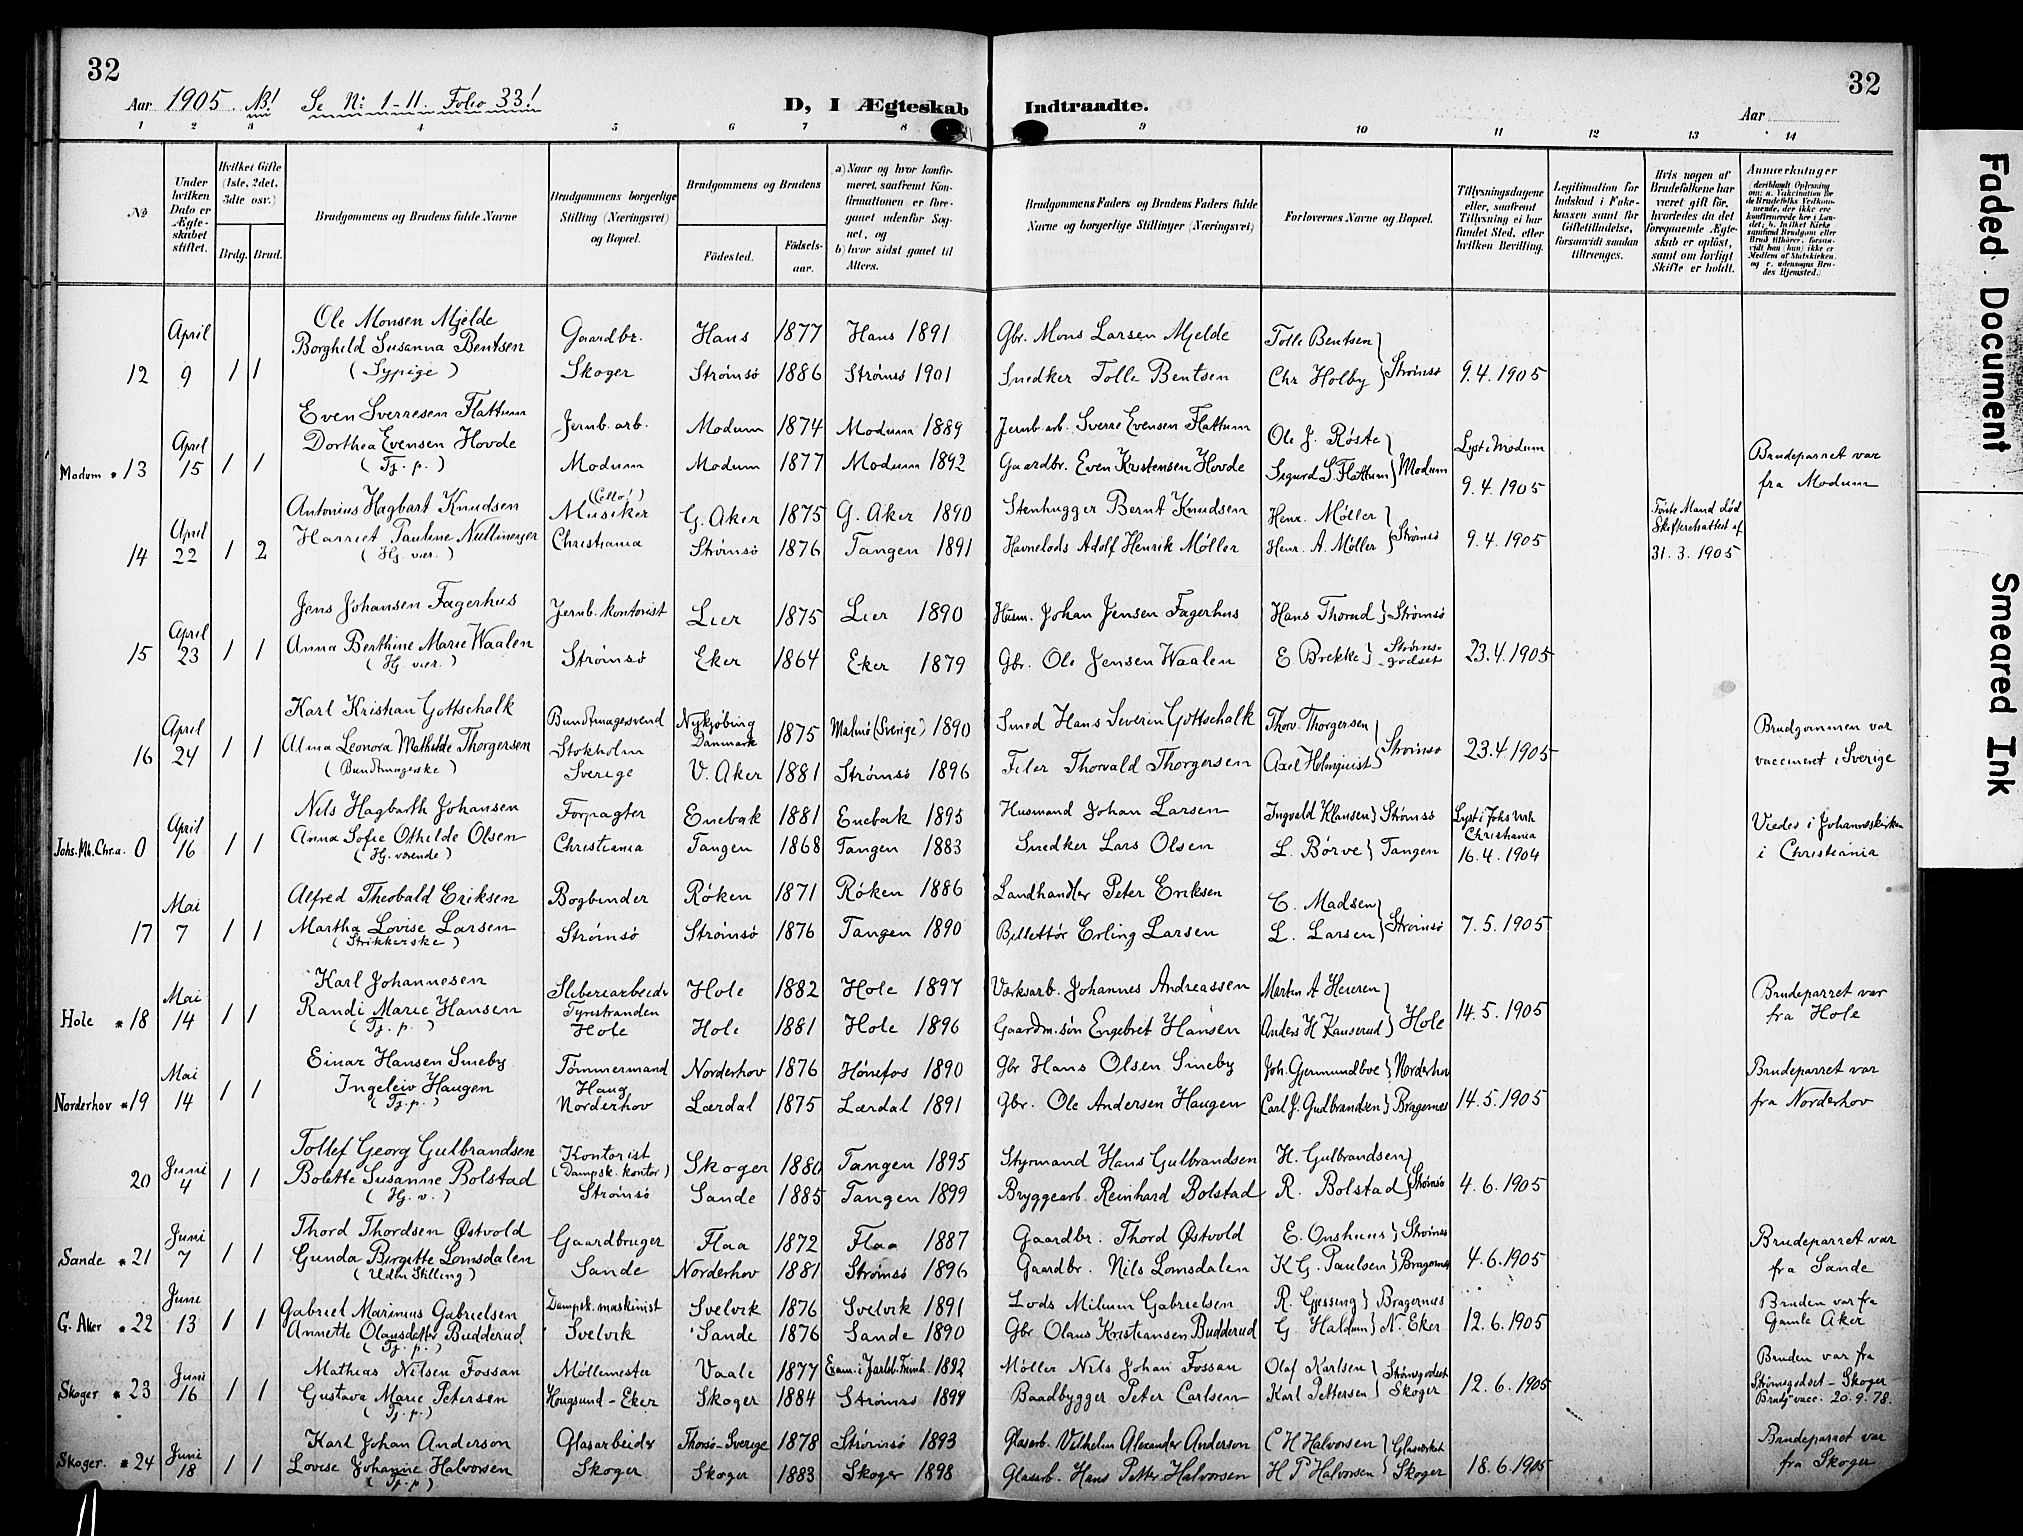 32
32
Aar 1905. NB! Se No: 1-11. Folio 33!
D, I Ægteskab Indtraadte.
Aar
1 2 3 4 5 6 7 8 9 10 11 12 13 14
No
Under hvilken Dato er Ægteskabet stiftet.
Hvilket Gifte (1ste, 2det, 3die osv.)
Brdg. Brud.
Brudgommens og Brudens fulde Navne
Brudgommens borgerlige Stilling (Næringsvei) og Bopæl.
Brudgommens og Brudens
Fødested.
Fødselsaar.
a) Naar og hvor konfirmeret, saafremt Konfirmationen er foregaaet udenfor Sognet, og
b) hvor sidst gaaet til Alters.
Brudgommens Faders og Brudens Faders fulde Navne og borgerlige Stillinger (Næringsvei)
Forlovernes Navne og Bopæl.
Tillysningsdagene eller, saafremt Tillysning ei har fundet Sted, efter hvilken Bevilling.
Legitimation for Indskud i Enkekassen samt for Giftetilladelse, forsaavidt saadan tiltrænges.
Hvis nogen af Brudefolkene har været gift før, hvorledes da det foregaaende Ægteskab er opløst, samt om lovligt Skifte er holdt.
Anmerkninger
(deriblandt Oplysning om: a. Vaccination for de Brudefolks Vedkommende, der ikke ere konfirmerede her i Landet; b. hvilket Kirkesamfund Brudgom eller Brud tilhører, forsaavidt han (hun) ikke er Medlem af Statskirken, og c. udensogns Brudes Hjemsted.)
12 April 9 1 1 Ole Monsen Mjelde Gaardbr. Hans 1877 Hans 1891 Gbr. Mons Larsen Mjelde Tolle Bentsen
Borghild Susanna Bentsen (Sypige) Skoger Strømsø 1886 Strømsø 1901 Snedker Tolle Bentsen Chr Holby } Strømsø 9.4.1905
Modum * 13 April 15 1 1 Even Sverresen Flattum Jernb. arb. Modum 1874 Modum 1889 Jernb arb. Sverre Evensen Flattum Ole J. Røste Lyst i Modum Brudeparret var
Dorthea Evensen Hovde (Tj. p.) Modum Modum 1877 Modum 1892 Gaardbr. Even Kristensen Hovde Sigurd S. Flattum } Modum 9.4.1905 fra Modum
14 April 22 1 2 Antonius Hagbart Knudsen (Cello!) Musiker G. Aker 1875 G. Aker 1890 Stenhugger Bernt Knudsen Henr. Møller Første Mand død
Harriet Pauline (Hj. vær.) Christiania Strømsø 1876 Tangen 1891 Havnelods Adolf Henrik Møller Henr. A. Møller } Strømsø 9.4.1905 Skifteretsattest af 31.3.1905
15 April 23 1 1 Jens Johansen Fagerhus Jernb. kontorist Lier 1875 Lier 1890 Husm. Johan Jensen Fagerhus Hans Thorud } Strømsø
Anna Berthine Marie Waalen (Hj vær.) Strømsø Eker 1864 Eker 1879 Gbr. Ole Jensen Waalen E. Brekke } Strømsgodset 23.4.1905
16 April 24 1 1 Karl Kristian Gottschalk Bundtmagersvend Nykjøbing Danmark 1875 Malmø (Sverige) 1890 Smed Hans Severin Gottschalk Thorv. Thorgersen Brudgommen var
Alma Leonora Mathilde Thorgersen (Bundtmagerske) Stokholm Sverige V. Aker 1881 Strømsø 1896 Filer Thorvald Thorgersen Axel Holmquist } Strømsø 23.4.1905 vaccineret i Sverige
Johs. Mk. Chr.a. 0 April 16 1 1 Nils Hagbarth Johansen Forpagter Enebak 1881 Enebak 1895 Husmand Johan Larsen Ingvald Klausen } Strømsø Lyst i Johs Mk Christiania Viedes i Johanneskirken
Anna Sofie Othilde Olsen (Hj. værende) Christiania Tangen 1868 Tangen 1883 Snedker Lars Olsen L. Børve } Tangen 16.4.1904 i Christiania
17 Mai 7 1 1 Alfred Theobald Eriksen Bogbinder Røken 1871 Røken 1886 Landhandler Peter Eriksen C. Madsen
Martha Lovise Larsen (Strikkerske) Strømsø Strømsø 1876 Tangen 1890 Billettør Erling Larsen L. Larsen } Strømsø 7.5.1905
Hole * 18 Mai 14 1 1 Karl Johannesen Sliberiarbeider Hole 1882 Hole 1897 Værksarb. Johannes Andreassen Martin A Brudeparret var
Randi Marie Hansen (Tj. p.) Tyristranden Hole Hole 1881 Hole 1896 Gaardm.søn Engebret Hansen Anders H } Hole 14.5.1905 fra Hole
Norderhov * 19 Mai 14 1 1 Einar Hansen Smeby Tømmermand Norderhov 1876 Hønefos 1890 Gbr Hans Olsen Smeby Joh. Gjermundboe } Norderhov Brudeparret var
Ingeleiv Haugen (Tj. p.) Haug Norderhov Lærdal 1875 Lærdal 1891 Gbr. Ole Andersen Haugen Carl J. Gudbrandsen } Bragernes 14.5.1905 fra Norderhov
20 Juni 4 1 1 Tollef Georg Gulbrandsen Kontorist (Dampsk. kontor) Skoger 1880 Tangen 1895 Styrmand Hans Gulbrandsen H. Gulbrandsen
Bolette Susanne Bolstad (Hj. v.) Strømsø Sande 1885 Tangen 1899 Bryggearb. Reinhard Bolstad R. Bolstad } Strømsø 4.6.1905
Sande * 21 Juni 7 1 1 Thord Thordsen Østvold Gaardbruger Flaa 1872 Flaa 1887 Gaardbr. Thord Østvold E. Onshuus } Strømsø Brudeparret var
Gunda Birgitte Lomsdalen (Uden Stilling) Sande Norderhov 1881 Strømsø 1896 Gaardbr. Nils Lomsdalen K G. Paulsen } Bragernes 4.6.1905 fra Sande
G. Aker * 22 Juni 13 1 1 Gabriel Marinius Gabrielsen Dampsk. maskinist Svelvik 1876 Svelvik 1891 Lods Gabrielsen R. Gjessing } Bragernes Bruden var fra
Annette Olausdatter Budderud (Tj. p.) Svelvik Sande 1876 Sande 1890 Gbr. Olaus Kristiansen Budderud G. Haldum } N. Eker 12.6.1905 Gamle Aker
Skoger * 23 Juni 16 1 1 Mathias Nilsen Fossan Møllemester Vaale 1877 1892 Møller Nils Johan Fossan Olaf Karlsen } Strømsgodset Bruden var fra
Gustava Marie Petersen (Tj. p.) Hougsund - Eker Skoger 1884 Strømsø 1899 Baadbygger Peter Carlsen Karl Pettersen } Skoger 12.6.1905 Strømsgodset - Skoger Brudg vacc. 20.9.78.
Skoger. * 24 Juni 18 1 1 Karl Johan Anderson Glasarbeider Thorsø - Sverige 1878 Strømsø 1893 Glasarb. Vilhelm Alexander Anderson C H Halvorsen } Glasverket Brudeparret var
Lovise Johanne Halvorsen (Tj. p) Skoger Skoger 1883 Skoger 1898 Glasarb. Hans Petter Halvorsen H P Halvorsen } Skoger 18.6.1905 fra Skoger
Faded Document
Smeared Ink